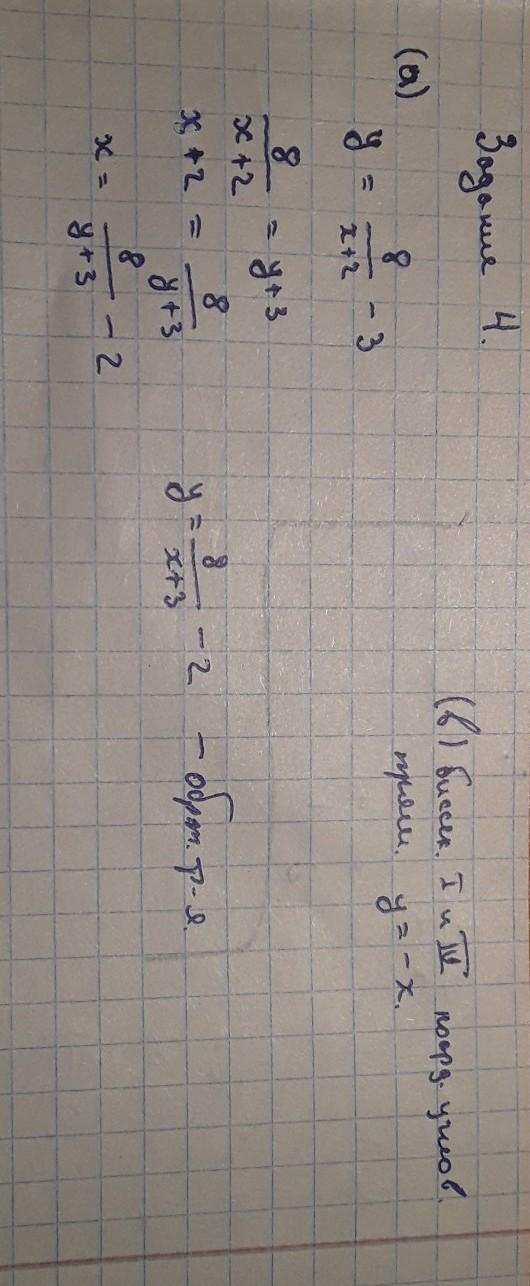 Задание 4.
(а)
y = 8/(x+2) - 3
8/(x+2) = y+3
x+2 = 8/(y+3)
x = 8/(y+3) - 2
y = 8/(x+3) - 2 - обрат. ф-я.
(в) биссек. I и III коорд. углов.
прям. y = -x.